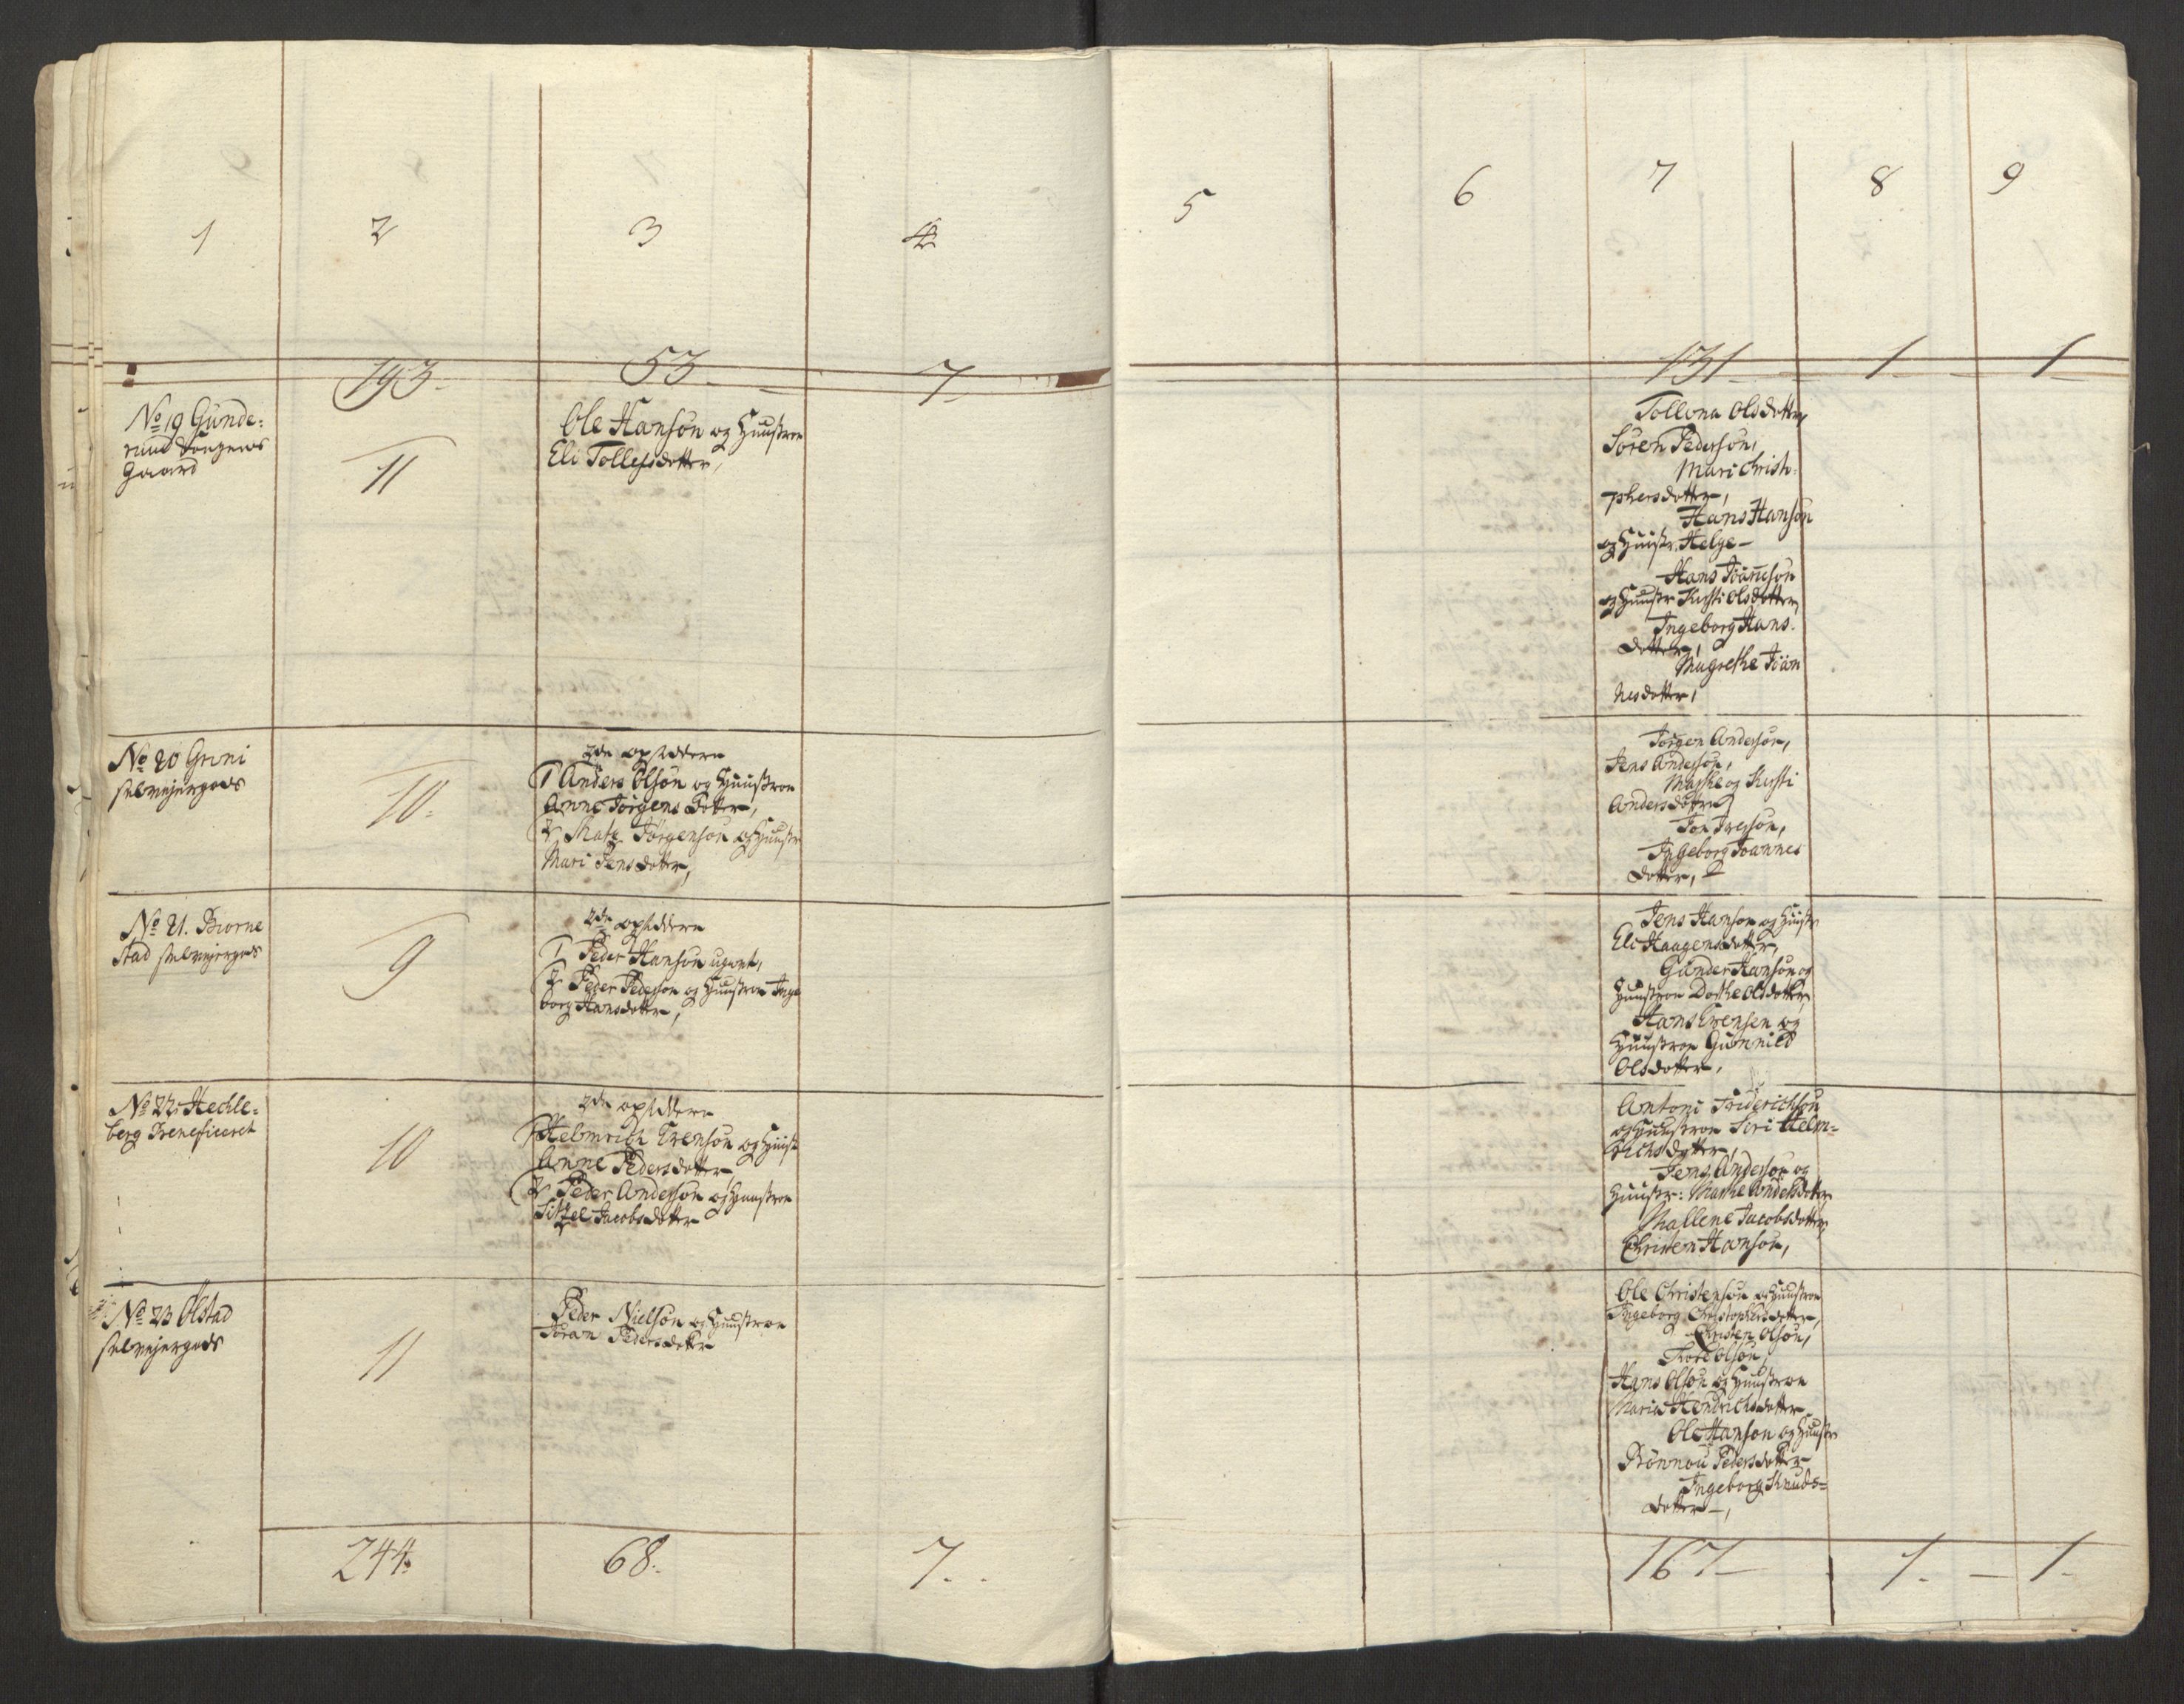 1
2
3
4
5
6
7
8
9
193.
53.
7.
131
1
1
No 19 Gunde:
rud
Gaard
11
Ole Hansøn og Huustroe
Eli Tollefsdotter,
Tollona Olsdotter,
Søren Pedersøn,
Mari Christo-
phersdotter,
Hans Hansøn
og Huustr. Helge
Hans Joansøn
og Huustr Kirsti Olsdotter
Ingeborg Hans-
dotter,
Magrethe Joan
nesdotter,
No 20 Gruni
selvejergods
10.
2de opsiddere
1 Anders Olsøn og Huustroe
Anne Jørgens dotter,
2 Matz Jørgensøn og Huustr
Mari Jensdotter,
Jørgen Andersøn,
Jens Andersøn,
Marthe og Kirsti
Andersdøttre
Jon Iversøn,
Ingeborg Joannes
dotter,
No 21. Biorne
stad selvejergods
9
2de opsiddere
1 Peder Hansøn ugivt,
2 Peder Pedersøn og Huustroe Inge
borg Hansdotter,
Jens Hansøn og Huustr
Eli Haagensdotter,
Gunder Hansøn og
Huustroe Dorthe Olsdotter,
Hans Evensen og
Huustroe Gunnild
Olsdotter,
No 22. Hechle-
berg Beneficeret
10
2de opsiddere
1 Helmrich Evensøn og Huust
Anne Pedersdotter
2 Peder Andersøn og Huustroe
Sitzel Jacobsdotter
Antoni Friderichsøn
og Huustroe Siri Helm-
richsdotter,
Jens Andersøn og
Huustr: Marthe Andersdotter
Mallene Jacobsdotter,
Christen Hansøn,
No 23 Olstad
selvejergods
11
Peder Nielsøn og Huustroe
Joran Pedersdotter
Ole Christensøn og Huustroe
Ingeborg Christophersdotter,
Christen Olsøn,
Tord Olsøn,
Hans Olsøn og Huustroe
Maria Hendrichsdotter
Ole Hansøn og Huustr
Rønnou Pedersdotter
Ingeborg Knuds-
dotter,
244.
68.
7.
167
1.
1.